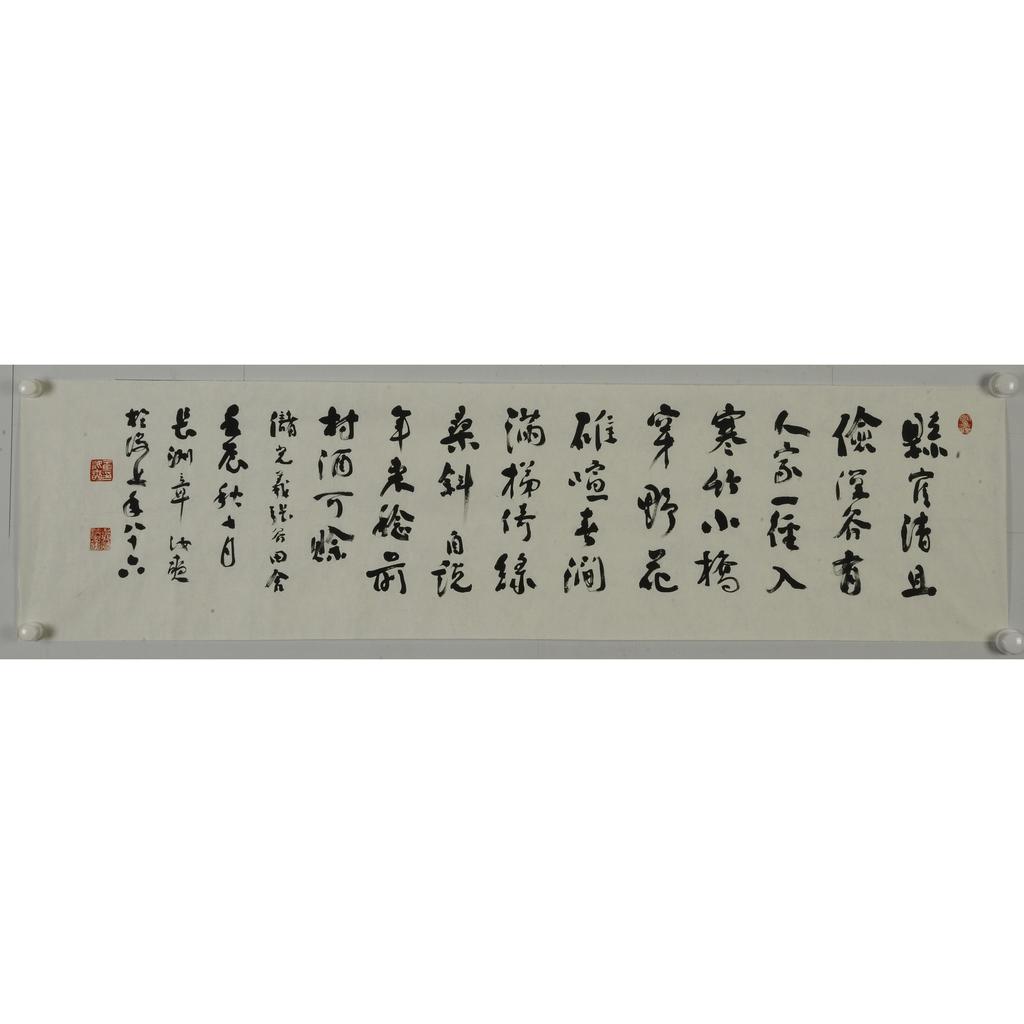 縣官清且
儉深谷有
人家一徑入
寒竹小橋
穿野花
碓喧春澗
滿梯倚綠
桑斜自說
年來稔前
村酒可賒
儲光羲張谷田舍
壬辰秋十月
長洲章汝奭
於海上年八十六